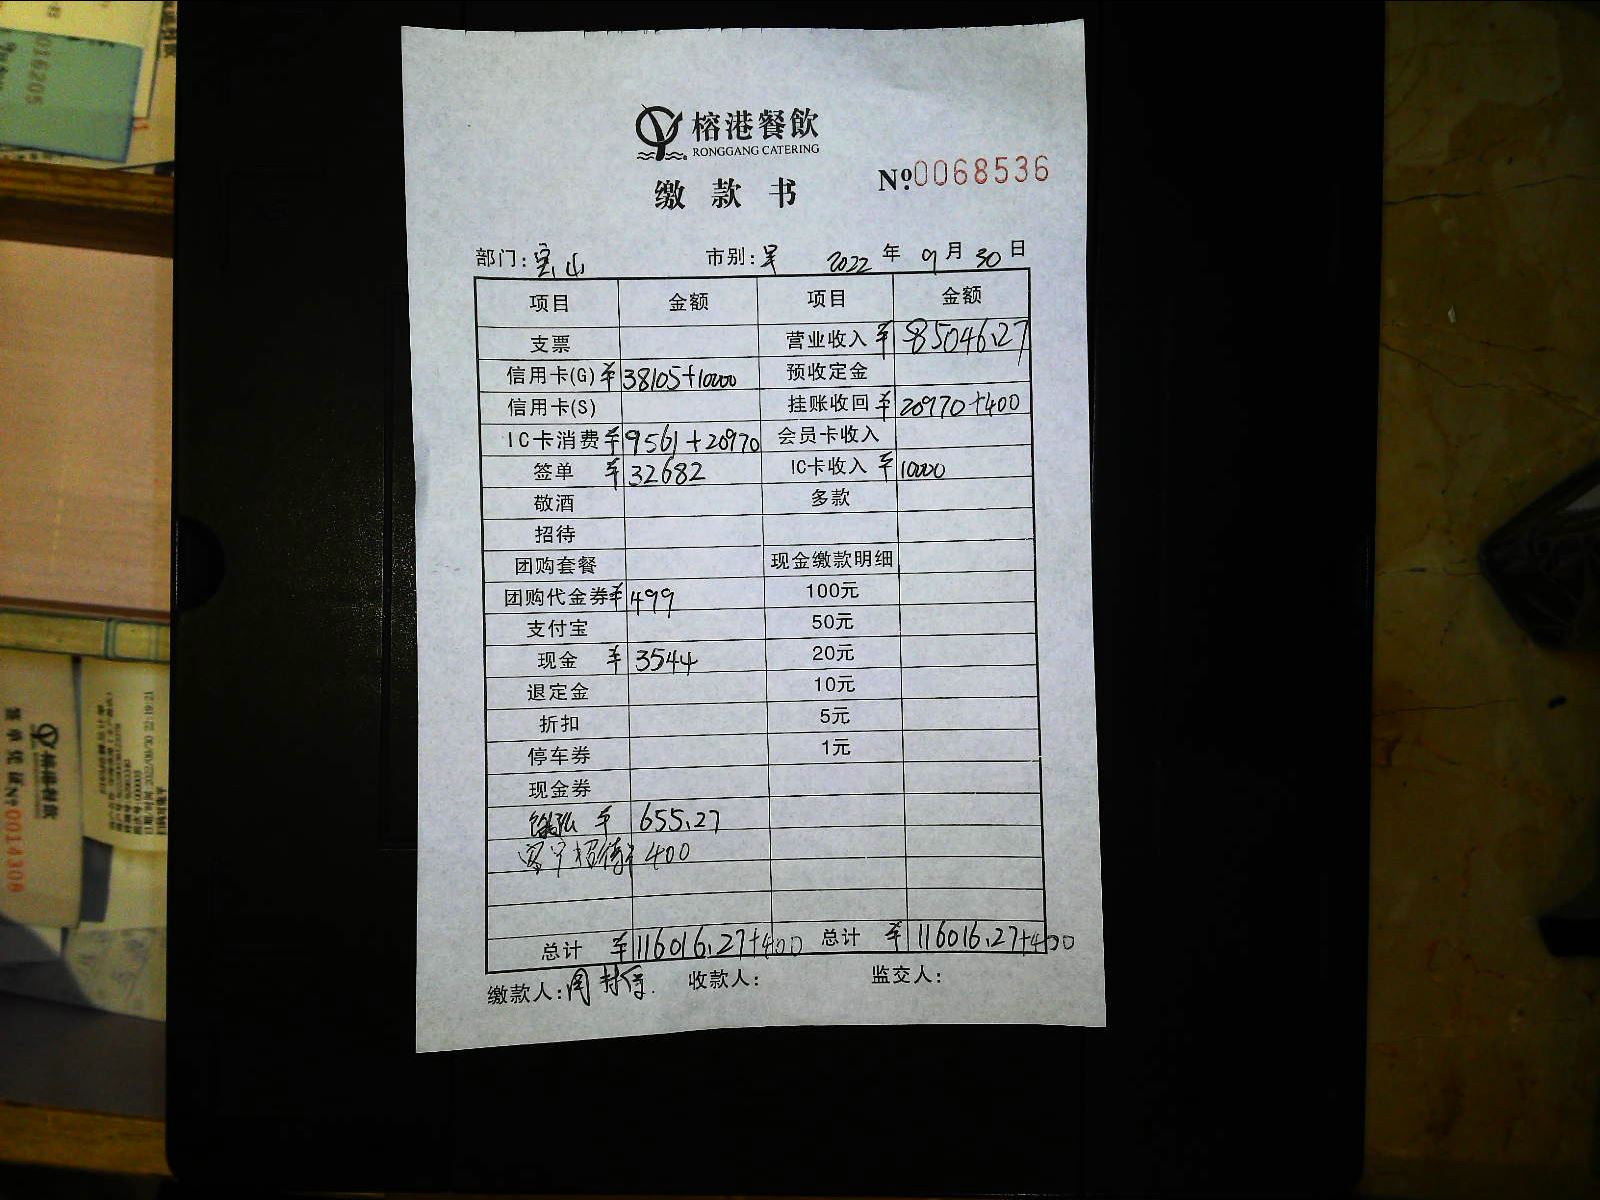 榕港餐飲
RONGGANG CATERING
缴款书
№0068536
部门: 宝山 市别: 早 2022 年 9 月 30 日
项目 金额 项目 金额
支票 营业收入 ¥ 85046.27
信用卡(G) ¥ 38105+10000 预收定金
信用卡(S) 挂账收回 ¥ 20970+400
IC卡消费 ¥ 9561+20970 会员卡收入
签单 ¥ 32682 IC卡收入 ¥ 10000
敬酒 多款
招待
团购套餐 现金缴款明细
团购代金券 ¥ 499 100元
支付宝 50元
现金 ¥ 3544 20元
退定金 10元
折扣 5元
停车券 1元
现金券
¥ 655.27
招待 400
总计 ¥ 116016.27+400 总计 ¥ 116016.27+400
缴款人: 周 收款人: 监交人:
016205
榕港餐飲
签单凭证№0014308